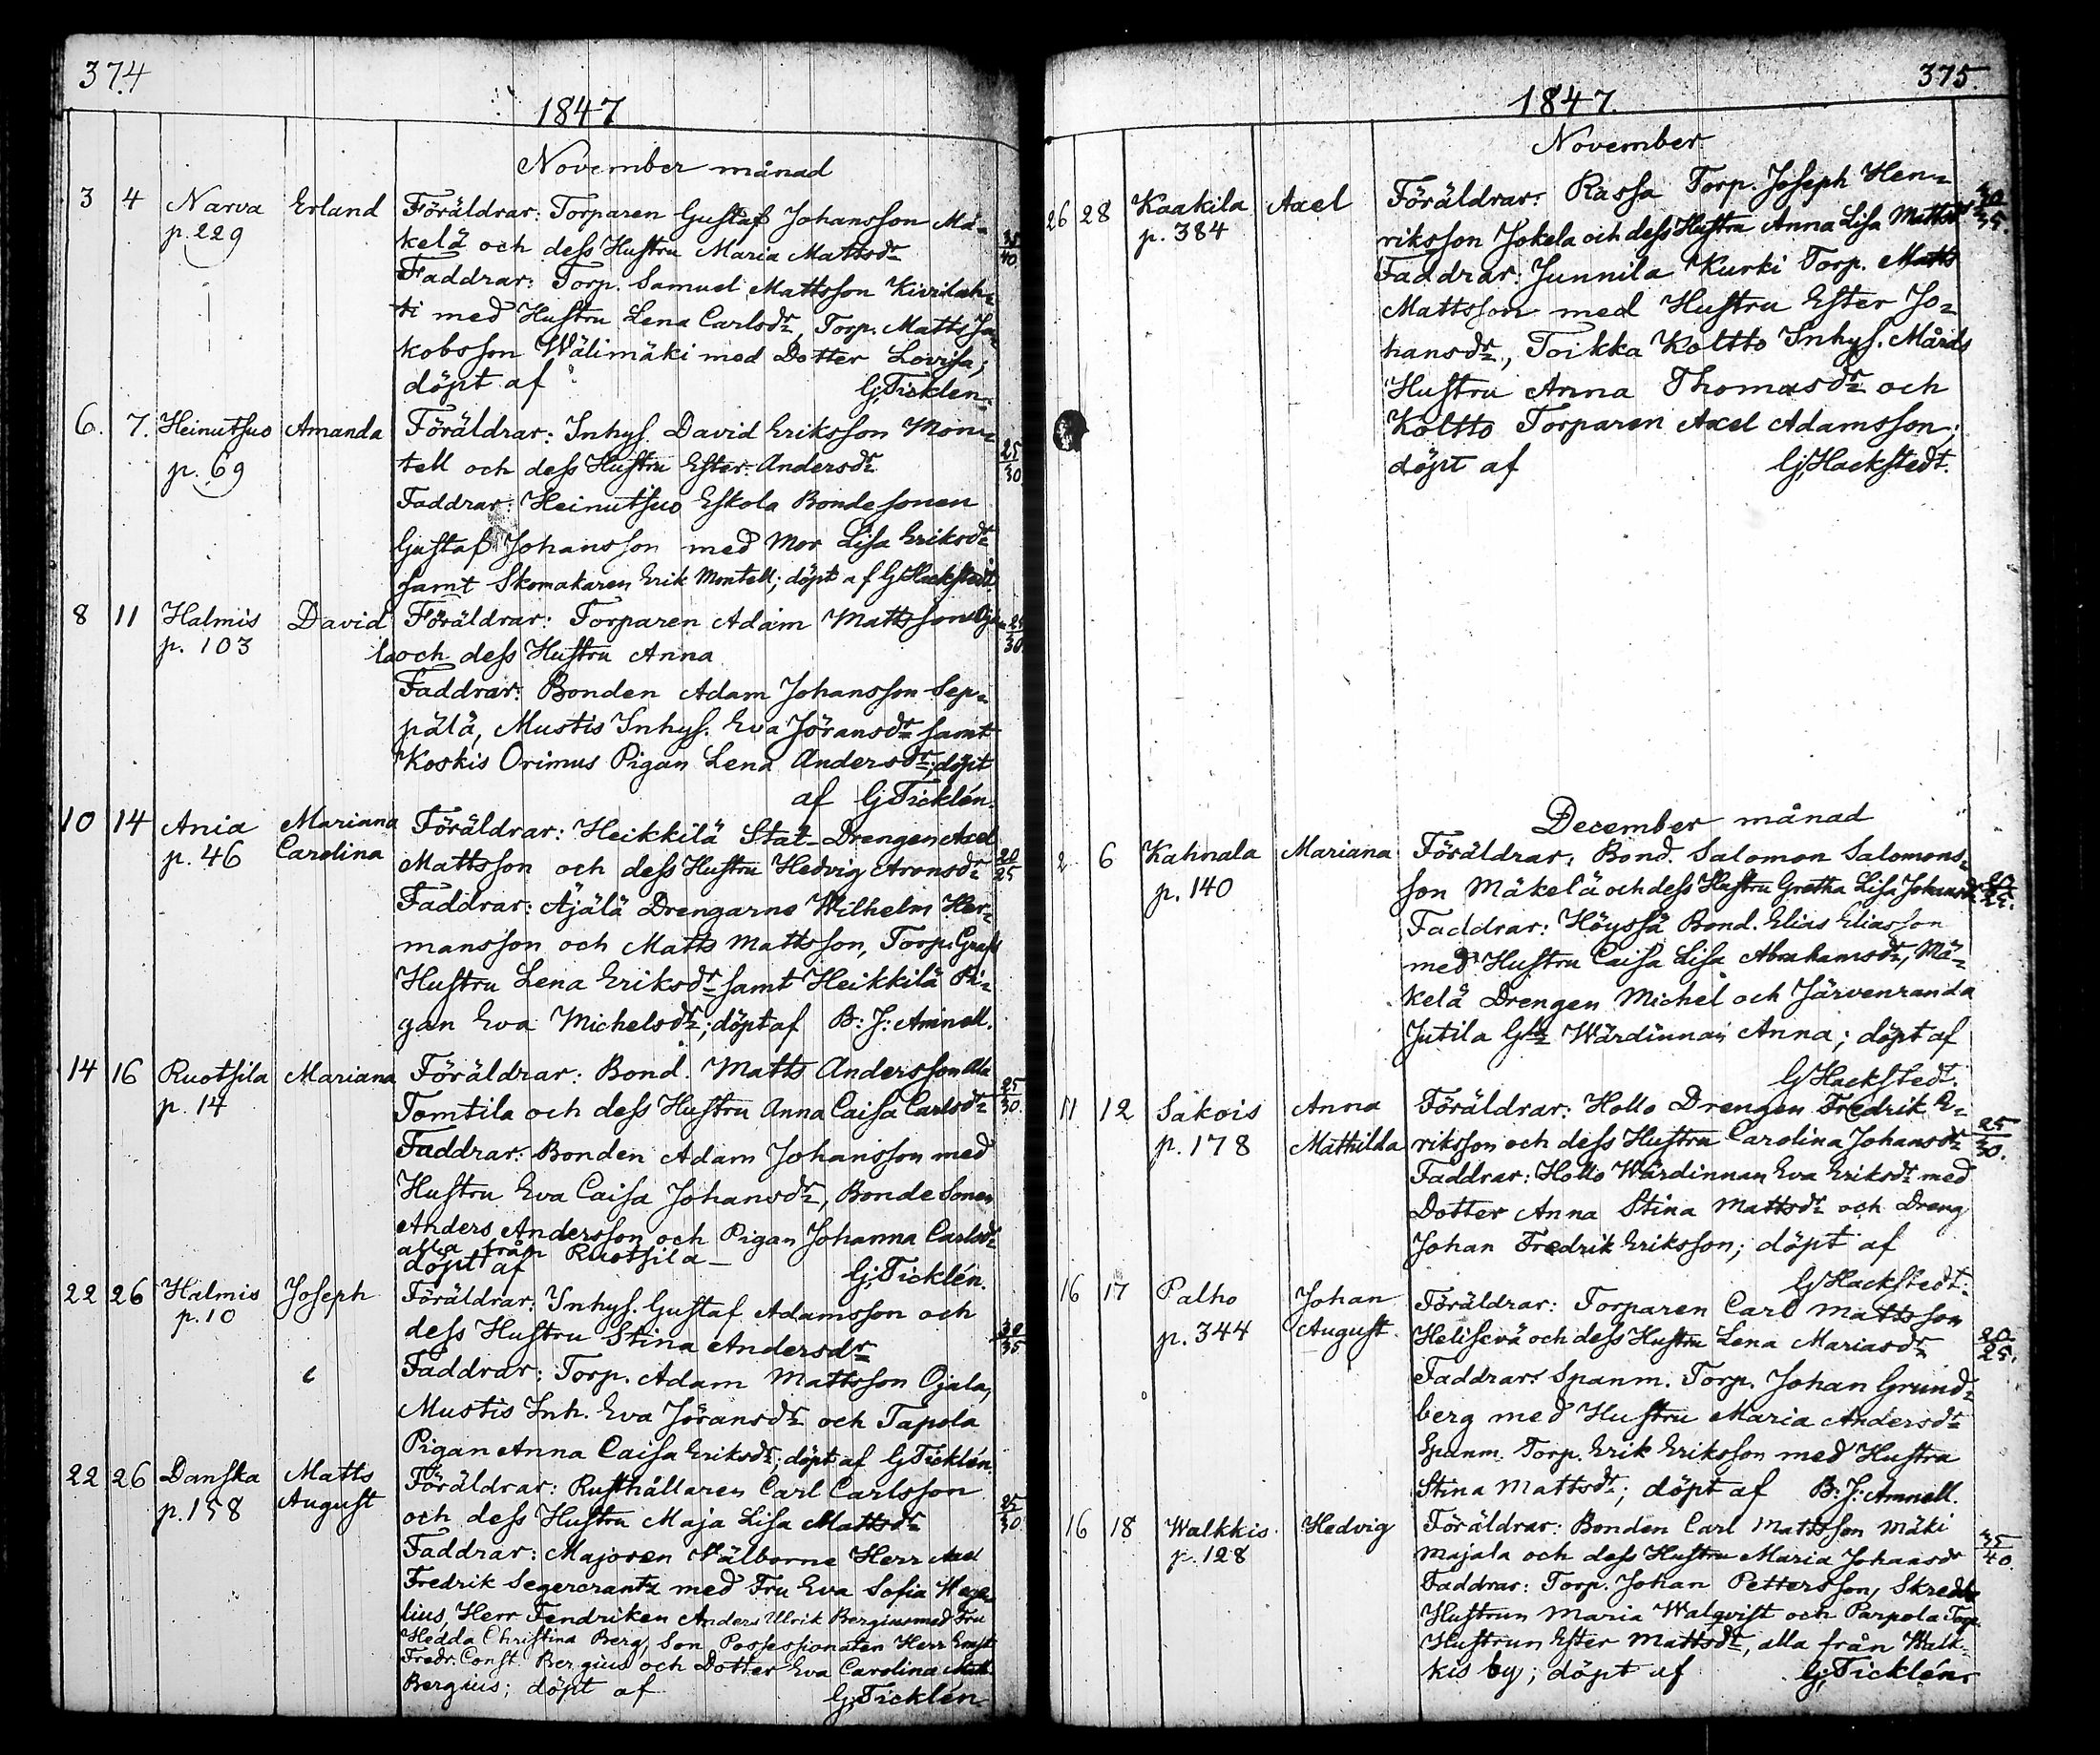 374
1847
November månad
3 4 Narva Erland Föräldrar: Torparen Gustaf Johansson Mä-
p. 229 kelä och dess Hustru Maria Mattsdr 35/40
Faddrar: Torp. Samuel Mattsson Kivilah-
ti med Hustru Lena Carlsdr, Torp. Matts Ja-
kobsson Wälimäki med Dotter Lovisa;
döpt af Gj. Ticklén.
6. 7. Heinutsuo Amanda Föräldrar: Inhys. David Eriksson Mon-
p. 69 tell och dess Hustru Ester Andersdr 25/30
Faddrar: Heinutsuo Eskola Bondesonen
Gustaf Johansson med Mor Lisa Eriksdr
samt Skomakaren Erik Montell; döpt af G Hackstedt.
8 11 Halmis David Föräldrar: Torparen Adam Mattsson Oja- 25/30
p. 103 la och dess Hustru Anna
Faddrar: Bonden Adam Johansson Sep-
pälä, Mustis Inhys. Eva Jöransdr samt
Koskis Orimus Pigan Lena Andersdr; döpt
af Gj Ticklén.
10 14 Ania Mariana Föräldrar: Heikkilä Stat-Drengen Axel
p. 46 Carolina Mattsson och dess Hustru Hedvig Aronsdr 20/25
Faddrar: Äjälä Drengarne Wilhelm Her-
mansson och Matts Mattsson, Torp.
Hustru Lena Eriksdr samt Heikkilä Pi-
gan Eva Michelsdr; döpt af B: J: Aminell.
14 16 Ruotsila Mariana Föräldrar: Bond. Matts Andersson Ala
p. 14 Tomtila och dess Hustru Anna Caisa Carlsdr 25/30
Faddrar: Bonden Adam Johansson med
Hustru Eva Caisa Johansdr, Bonde Sonen
Anders Andersson och Pigan Johanna Carlsdr
alla från Ruotsila —
döpt af Gj. Ticklén.
22 26 Halmis Joseph Föräldrar: Inhys. Gustaf Adamsson och
p. 10 dess Hustru Stina Andersdr 30/35
Faddrar: Torp. Adam Mattsson Ojala,
Mustis Inh. Eva Jöransdr och Tapola
Pigan Anna Caisa Eriksdr; döpt af Gj Ticklén.
22 26 Danska Matts Föräldrar: Rusthållaren Carl Carlsson
p. 158 August och dess Hustru Maja Lisa Mattsdr 25/30
Faddrar: Majoren Välborne Herr Axel
Fredrik Segercrantz med Fru Eva Sofia
lius, Herr Fendriken Anders Ulrik Bergius med Fru
Hedda Christina Berg, Son Possessionaten Herr Ernst
Fredr. Const. Bergius och Dotter Eva Carolina
Bergius; döpt af Gj. Ticklén
375.
1847.
November
26 28 Kaakila Axel Föräldrar: Rässä Torp. Joseph Hen- 30/35.
p. 384 riksson Jokela och dess Hustru Anna Lisa Mattsdr
Faddrar: Junnila Kurki Torp. Matts
Mattsson med Hustru Ester Jo-
hansdr, Toikka Koltto Inhys. Mårds
Hustru Anna Thomasdr och
Koltto Torparen Axel Adamsson;
döpt af Gj Hackstedt.
December månad
2 6 Kahnala Mariana Föräldrar: Bond. Salomon Salomons-
p. 140 son Mäkelä och dess Hustru Gretha Lisa Johansdr
Faddrar: Höyssä Bond. Elias Eliasson
med Hustru Caisa Lisa Abrahamsdr, Mä-
kelä Drengen Michel och Järvenranda
Jutila Gla Wärdinnan Anna; döpt af
Gj Hackstedt.
11 12 Sakois Anna Föräldrar: Hollo Drengen Fredrik E-
p. 178 Mathilda riksson och dess Hustru Carolina Johansdr 25/30.
Faddrar: Hollo Wärdinnan Eva Eriksdr med
Dotter Anna Stina Mattsdr och Dreng
Johan Fredrik Eriksson; döpt af
Gj Hackstedt.
16 17 Palho Johan Föräldrar: Torparen Carl Mattsson
p. 344 August Helisevä och dess Hustru Lena Mariasdr 20/25.
Faddrar: Spanm. Torp. Johan Grund-
berg med Hustru Maria Andersdr
Spanm. Torp. Erik Eriksson med Hustru
Stina Mattsdr; döpt af B: J: Aminell.
16 18 Walkkis Hedvig Föräldrar: Bonden Carl Mattsson Mäki
p. 128 Majala och dess Hustru Maria Johansdr 35/40.
Faddrar: Torp. Johan Pettersson, Skredd.
Hustrun Maria Walqvist och Parpola Torp.
Hustrun Ester Mattsdr, alla från Walk-
kis by; döpt af Gj. Ticklén.